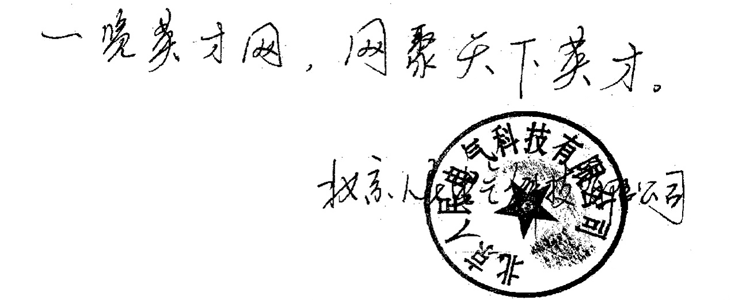 一览英才网，网聚天下英才。
北京人民电气科技有限公司
北京人民电气科技有限公司